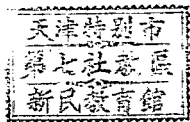 天津特別市
第七社教區
新民教育館